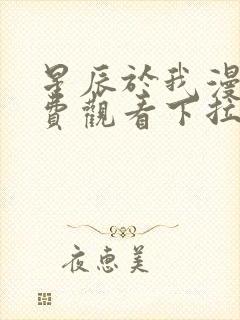 星辰於我漫
費觀看下拉
夜惠美